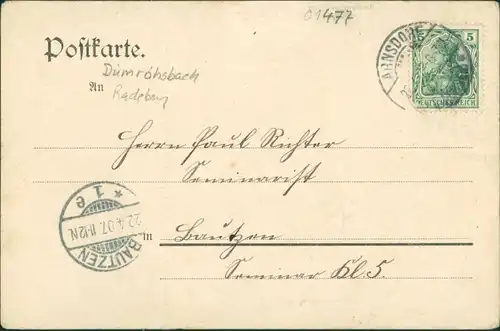 01477
Postkarte.
Dürrröhsbach
Radeberg
An
ARNSDORF
5 5
DEUTSCHES REICH
Herrn Paul Richter
Seminarist
in Bautzen
Seminar Kl. 5.
* 1 e
22.4.07. 11-12N.
BAUTZEN